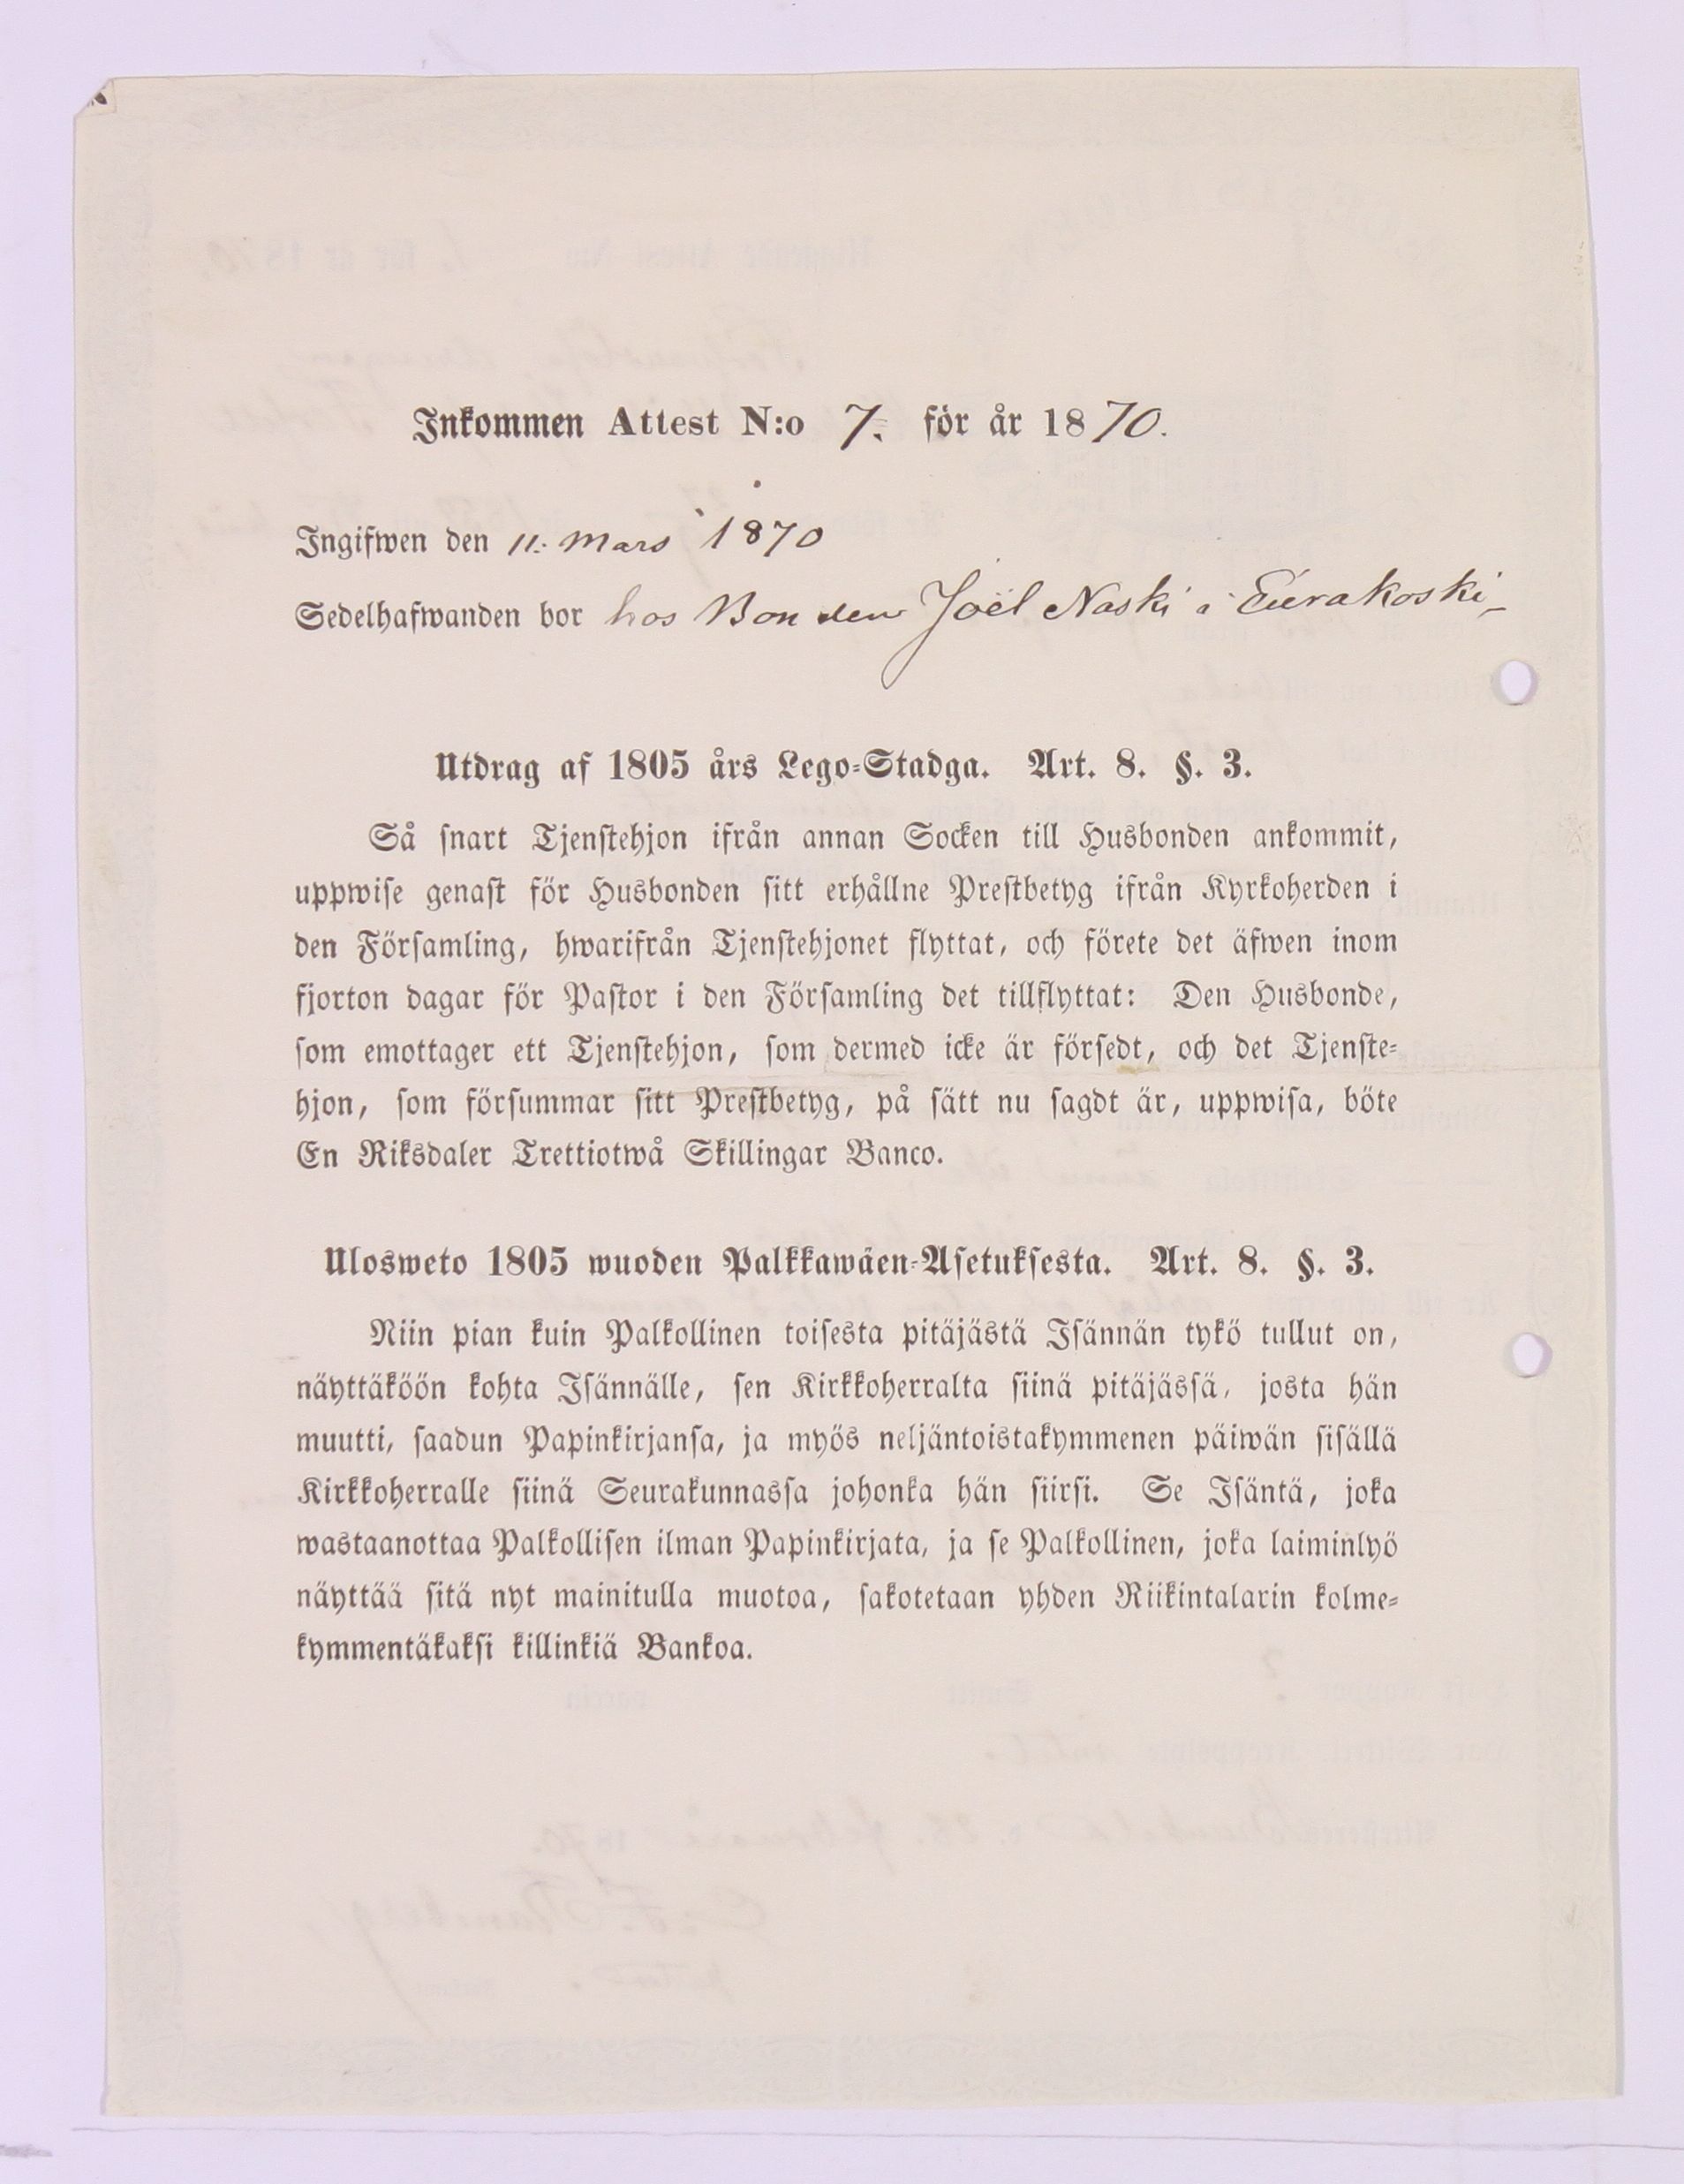 Inkommen Attest N:o 7. för år 1870.
Ingifwen den 11. Mars 1870
Sedelhafwanden bor hos Bonden Joël Naski i Eurakoski
Utdrag af 1805 års Lego-Stadga. Art. 8. §. 3.
Så snart Tjenstehjon ifrån annan Socken till Husbonden ankommit,
uppwise genast för Husbonden sitt erhållne Prestbetyg ifrån Kyrkoherden i
den Församling, hwarifrån Tjenstehjonet flyttat, och förete det äfwen inom
fjorton dagar för Pastor i den Församling det tillflyttat: Den Husbonde,
som emottager ett Tjenstehjon, som dermed icke är försedt, och det Tjenste-
hjon, som försummar sitt Prestbetyg, på sätt nu sagdt är, uppwisa, böte
En Riksdaler Trettiotwå Skillingar Banco.
Ulosweto 1805 wuoden Palkkawäen-Asetuksesta. Art. 8. §. 3.
Niin pian kuin Palkollinen toisesta pitäjästä Isännän tykö tullut on,
näyttäköön kohta Isännälle, sen Kirkkoherralta siinä pitäjässä, josta hän
muutti, saadun Papinkirjansa, ja myös neljäntoistakymmenen päiwän sisällä
Kirkkoherralle siinä Seurakunnassa johonka hän siirsi. Se Isäntä, joka
wastaanottaa Palkollisen ilman Papinkirjata, ja se Palkollinen, joka laiminlyö
näyttää sitä nyt mainitulla muotoa, sakotetaan yhden Riikintalarin kolme-
kymmentäkaksi killinkiä Bankoa.